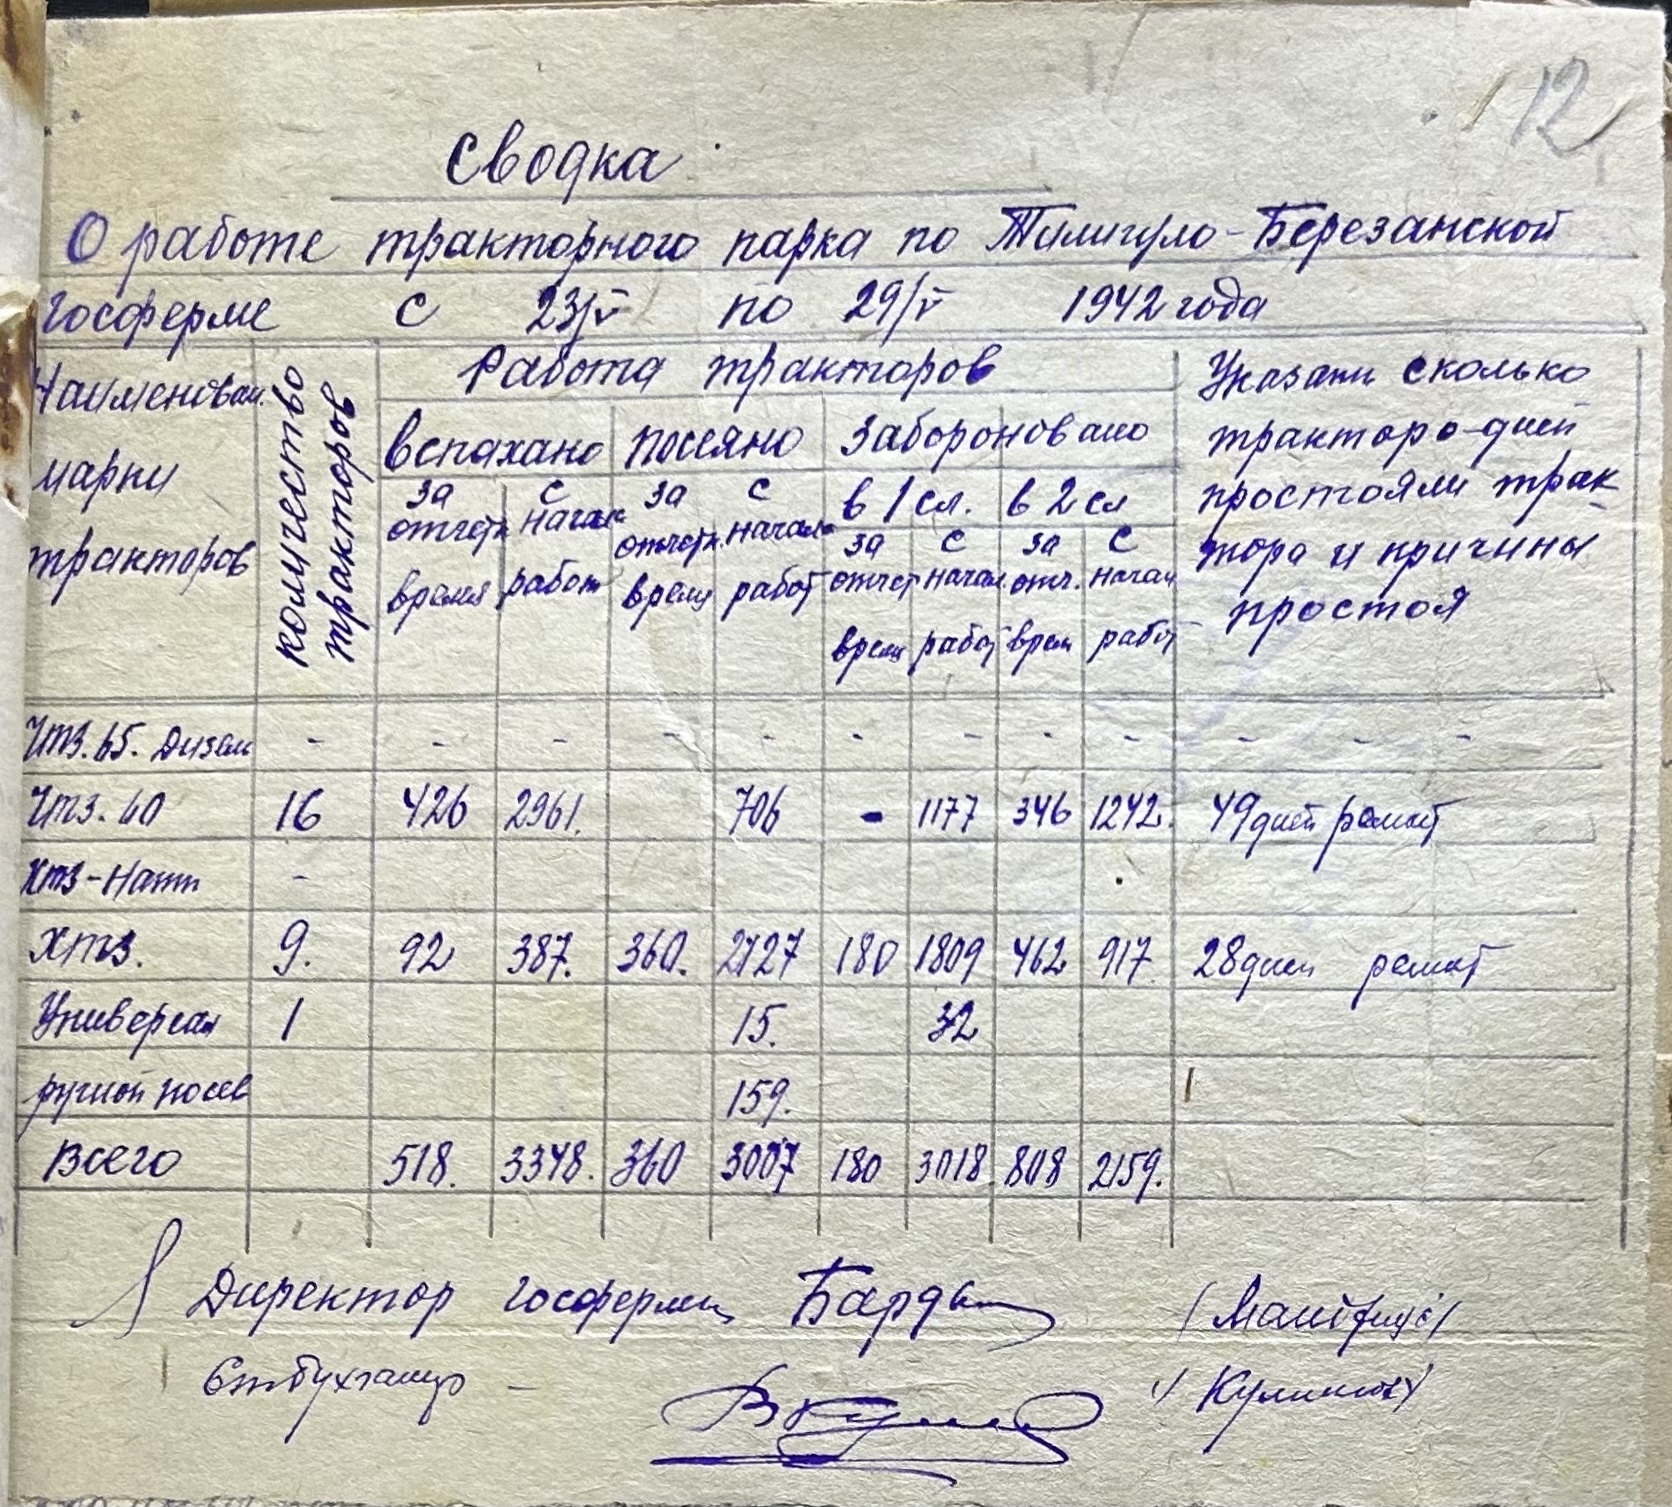 12
Сводка
О работе тракторного парка по Тилигуло-Березанской
госферме с 23/V по 29/V 1942 года
Наименован. марки тракторов
количество тракторов
Работа тракторов
Указати сколько тракторо-дней простояли трактора и причины простоя
вспахано посеяно заборонов ано
в 1 сл. в 2 сл
за отчетн. время с начал работ за отчетн. время с начала работ за отчет время с начал. работ за отч. врем с начал работ
Чтз. 65. Дизель - - - - - - - - - - - -
Чтз. 60 16 426 2961. 706 - 1177 346 1242. 49 дней ремонт
Хтз-Нати -
Хтз. 9. 92 387. 360. 2127 180 1809 462 917. 28 дней ремонт
Универсал 1 15. 32
ручной посев 159.
Всего 518. 3348. 360 3007 180 3018. 808 2159.
Директор госфермы
Ст бухгалтер -